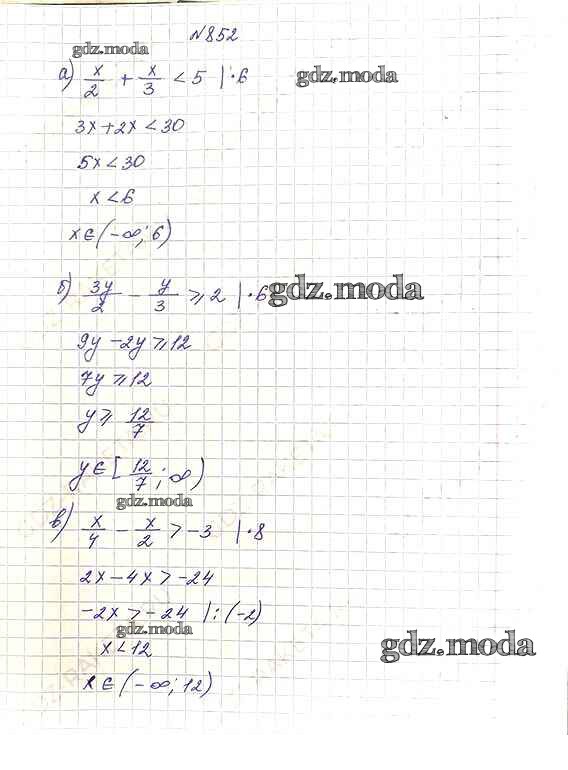 №852
gdz.moda
а) x/2 + x/3 < 5 | · 6 gdz.moda
3x + 2x < 30
5x < 30
x < 6
x ∈ (-∞; 6)
б) 3y/2 - y/3 ⩾ 2 | · 6 gdz.moda
9y - 2y ⩾ 12
7y ⩾ 12
y ⩾ 12/7
y ∈ [12/7; ∞)
gdz.moda
в) x/4 - x/2 > -3 | · 8
2x - 4x > -24
-2x > -24 | : (-2)
gdz.moda
x < 12 gdz.moda
x ∈ (-∞; 12)